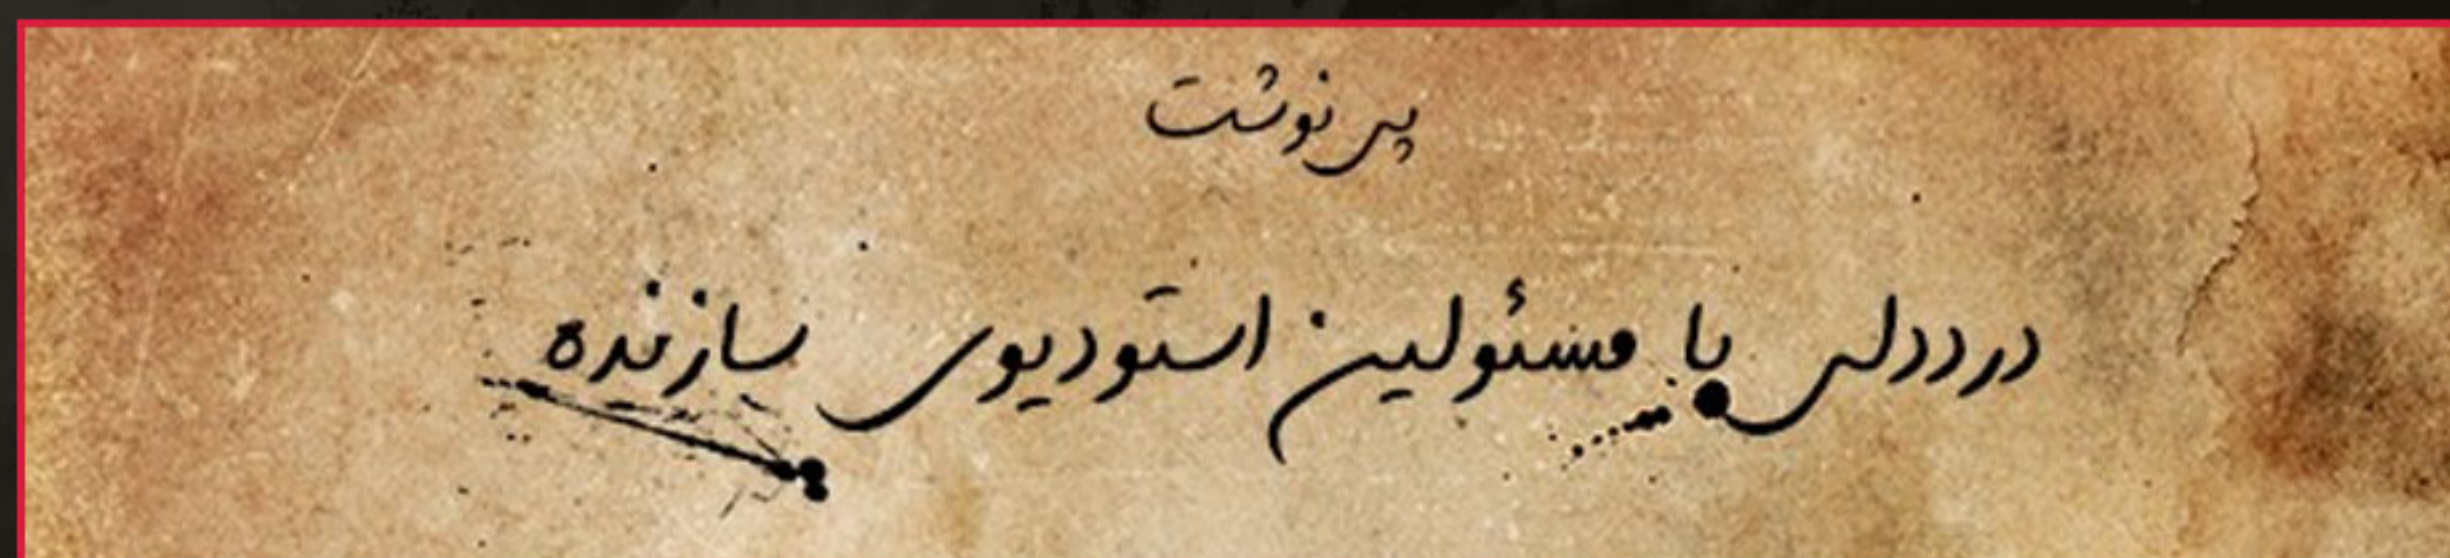 پی نوشت
درددلی با مسئولین استودیوی سازنده